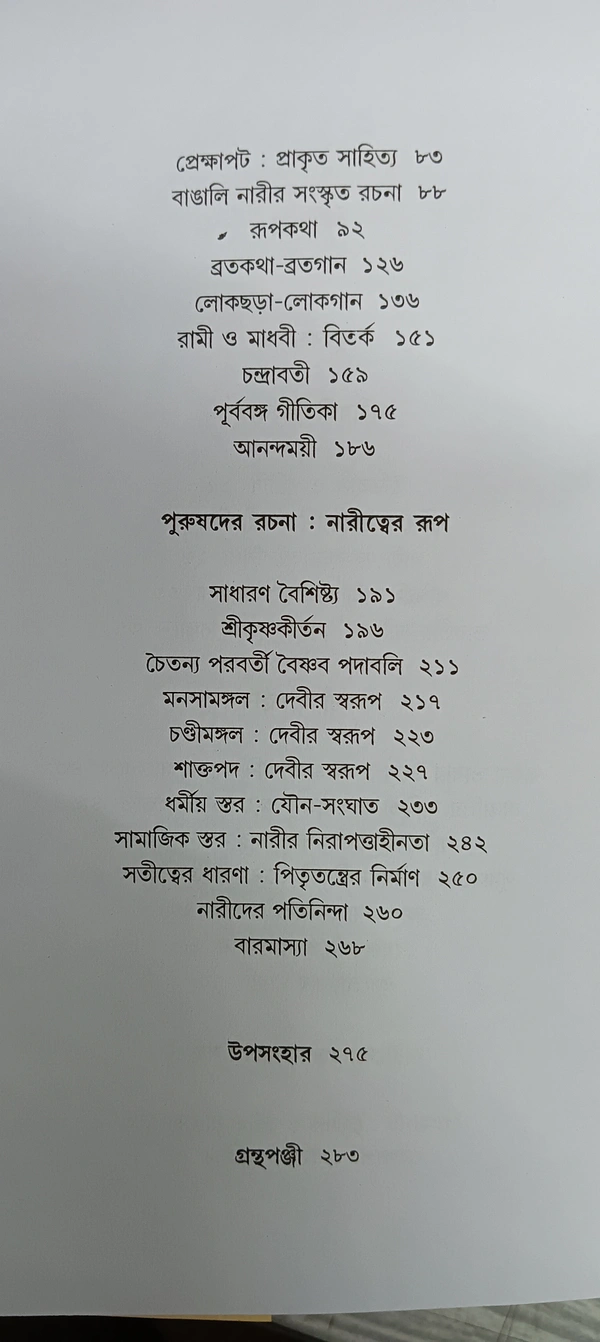 প্রেক্ষাপট : প্রাকৃত সাহিত্য ৮৩
বাঙালি নারীর সংস্কৃত রচনা ৮৮
রূপকথা ৯২
ব্রতকথা-ব্রতগান ১২৬
লোকছড়া-লোকগান ১৩৬
রামী ও মাধবী : বিতর্ক ১৫১
চন্দ্রাবতী ১৫৯
পূর্ববঙ্গ গীতিকা ১৭৫
আনন্দময়ী ১৮৬
পুরুষদের রচনা : নারীত্বের রূপ
সাধারণ বৈশিষ্ট্য ১৯১
শ্রীকৃষ্ণকীর্তন ১৯৬
চৈতন্য পরবর্তী বৈষ্ণব পদাবলি ২১১
মনসামঙ্গল : দেবীর স্বরূপ ২১৭
চণ্ডীমঙ্গল : দেবীর স্বরূপ ২২৩
শাক্তপদ : দেবীর স্বরূপ ২২৭
ধর্মীয় স্তর : যৌন-সংঘাত ২৩৩
সামাজিক স্তর : নারীর নিরাপত্তাহীনতা ২৪২
সতীত্বের ধারণা : পিতৃতন্ত্রের নির্মাণ ২৫০
নারীদের পতিনিন্দা ২৬০
বারমাস্যা ২৬৮
উপসংহার ২৭৫
গ্রন্থপঞ্জী ২৮৩